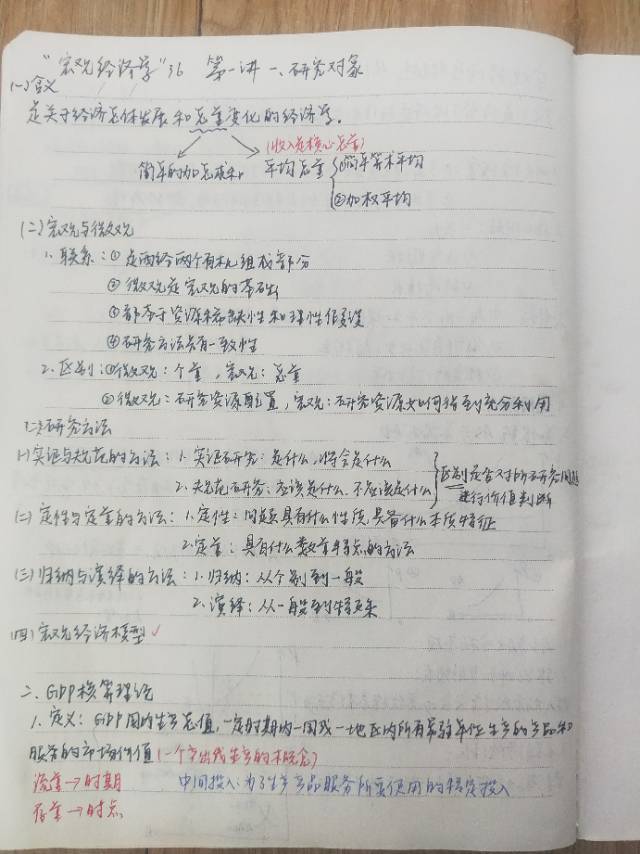 "宏观经济学"36 第一讲 一、研究对象
(一)含义
是关于经济总体发展和总量变化的经济学。
(收入是核心总量)
简单的加总求和 平均总量 ①简单算术平均
②加权平均
(二)宏观与微观
1.联系:①是两个有机组成部分
②微观是宏观的基础
③都基于资源稀缺性和理性假设
④研究方法具有一致性
2.区别:①微观:个量,宏观:总量
②微观:研究资源配置,宏观:研究资源如何得到充分利用
二、研究方法
(一)实证与规范的方法:1.实证研究:是什么,将会是什么
2.规范研究:应该是什么,不应该是什么 区别是否对所研究问题
进行价值判断
(二)定性与定量的方法:1.定性:问题具有什么性质,具备什么本质特征
2.定量:具有什么数量特点的方法
(三)归纳与演绎的方法:1.归纳:从个别到一般
2.演绎:从一般到特殊
(四)宏观经济模型✓
二、GDP核算理论
1.定义:GDP国内生产总值,一定时期内一国或一地区内所有常驻单位生产的产品和
服务的市场价值(一个产出或生产的概念)
流量→时期 中间投入:为了生产产品服务所要使用的投入
存量→时点